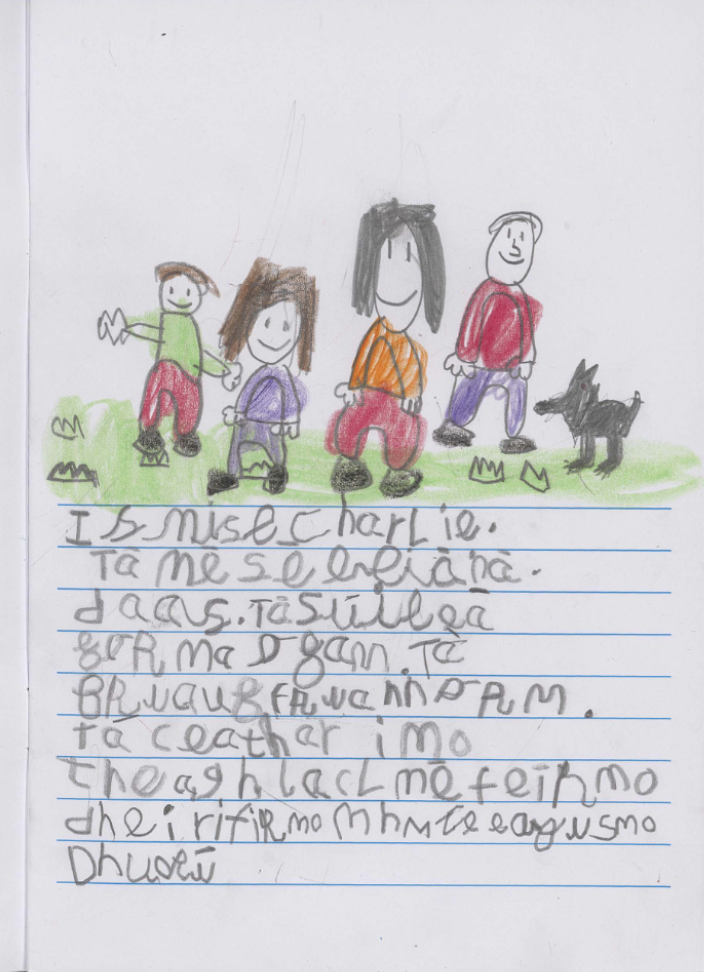 Is mise Charlie.
Tá mé sé bliana.
d aas. Tá súileá
gorma ogam. Tá
gruaug fruann orm.
tá ceathar i mo
theaghlacL mé féiR mo
dheirifiR mo mhmtée agus mo
Dhuoeū